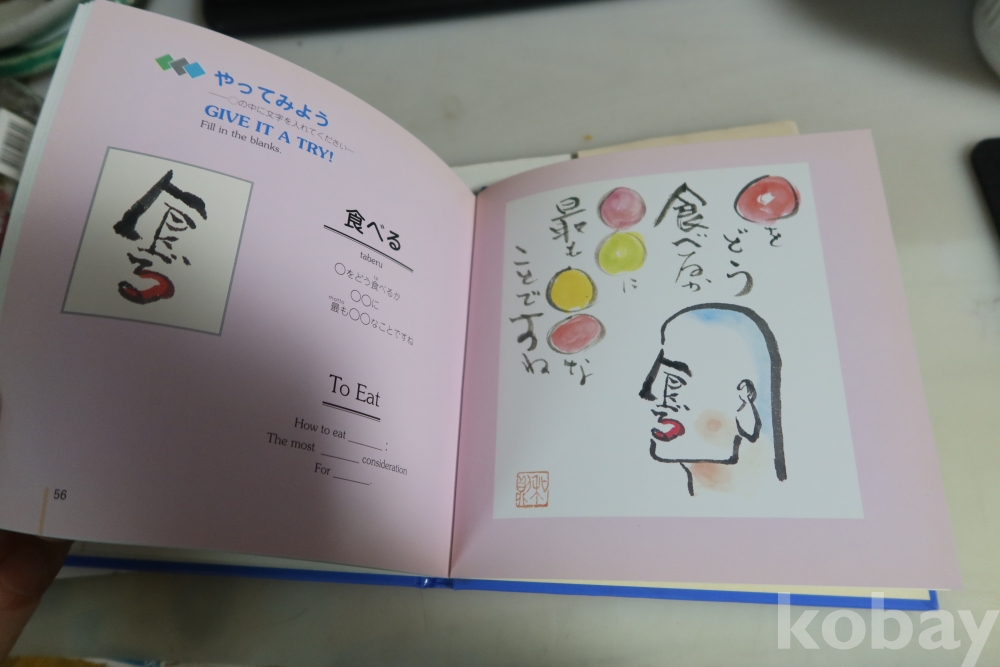 やってみよう
—○の中に文字を入れてください—
GIVE IT A TRY!
Fill in the blanks.
食べる
食べる
taberu
○をどう食べるか
○○に
最も○○なことですね
To Eat
How to eat ______ :
The most ______ consideration
For ______.
56
をどう
食べるか
に
最も
な
ことですね
食べる
kobay